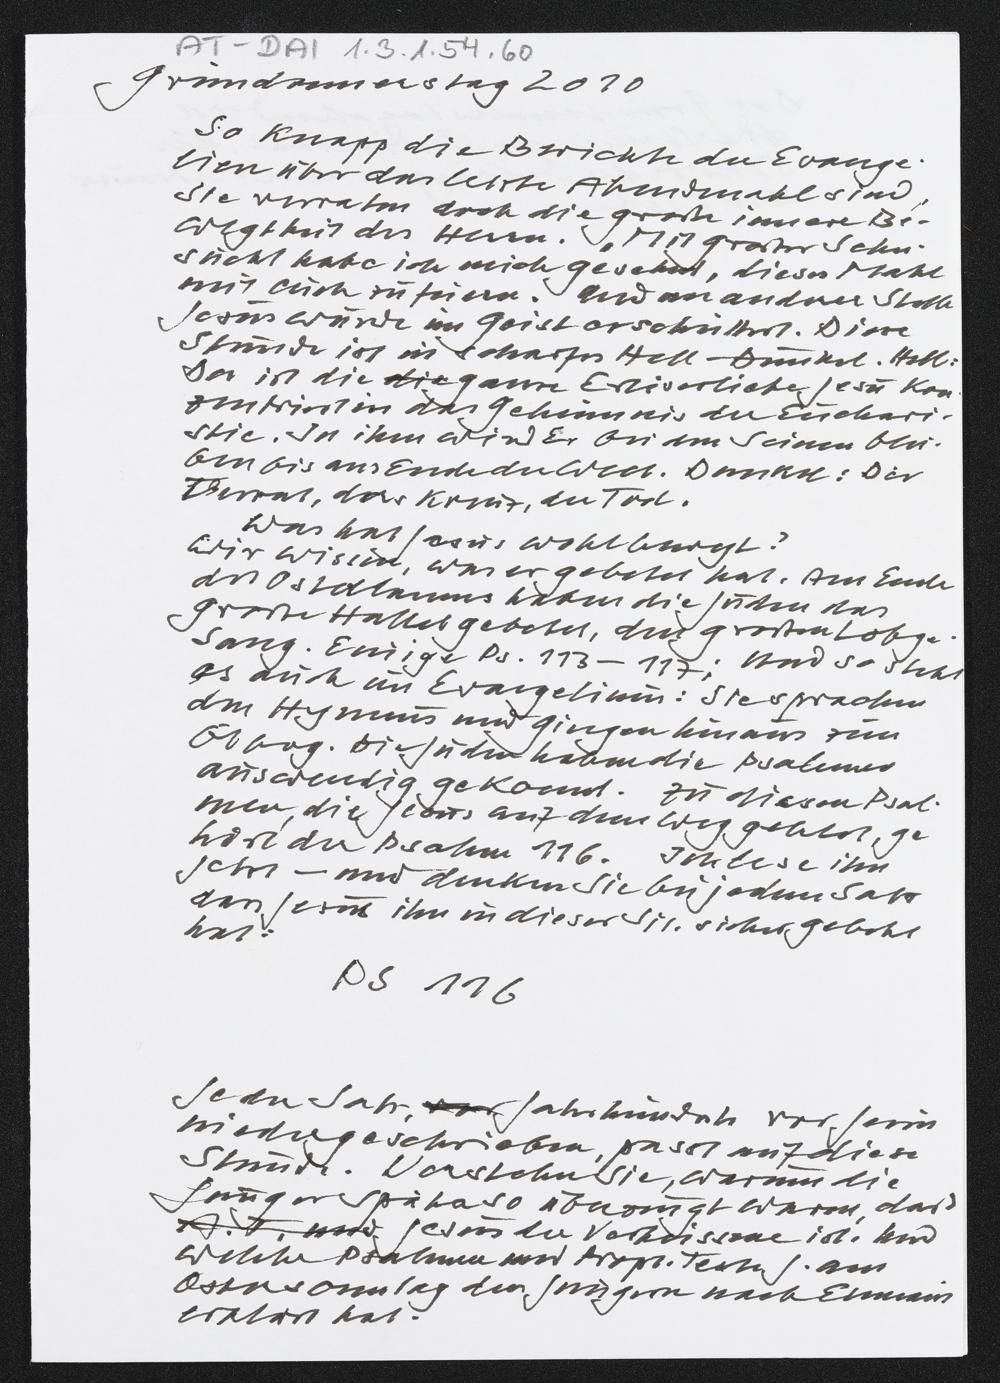 AT-DAI 1.3.1.54.60
Gründonnerstag 2010
So knapp die Berichte der Evange-
lien über das letzte Abendmahl sind,
Sie verraten doch die große innere Be-
wegtheit des Herrn. „Mit großer Sehn-
sucht habe ich mich gesehnt, dieses Mahl
mit euch zu feiern. Und an anderer Stelle
Jesus wurde im Geist erschüttert. Diese
Stunde ist in scharfes Hell-Dunkel. Hell:
Da ist die die ganze Erlöserliebe Jesu kon-
zentriert in das Geheimnis der Euchari-
stie. In ihm wird Er bei den Seinen blei-
ben bis ans Ende der Welt. Dunkel: Der
Verrat, das Kreuz, der Tod.
Was hat Jesus wohl bewegt?
Wir wissen, was er gebetet hat. Am Ende
des Ostermahls haben die Juden das
große Hallel gebetet, den großen Lobge-
sang. Einige Ps. 113 – 117; Und so steht
es auch im Evangelium: Sie sprachen
den Hymnus und gingen hinaus zum
Ölberg. Die Juden haben die Psalmen
auswendig gekonnt. Zu diesen Psal-
men, die Jesus auf dem Weg gebetet, ge
hört der Psalm 116. Ich lese ihn
jetzt – und denken Sie bei jedem Satz
dass Jesus ihn in dieser Sit. sicher gebetet
hat:
PS 116
Jeder Satz, vor Jahrhunderte vor Jesus
niedergeschrieben, passt auf diese
Stunde. Verstehen Sie, warum die
Jünger später so überzeugt waren, dass
A.T. und Jesus der Verheissene ist. Und
welche Psalmen und Proph. Texte J. am
Ostersonntag den Jüngern nach Emmaus
erklärt hat.